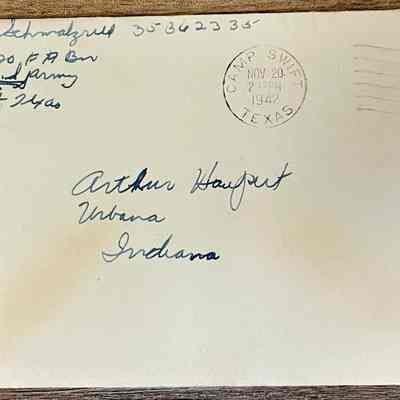 Schmalzried 35362335
F A Bn
Army
Texas
CAMP SWIFT
NOV 20
1942
TEXAS
Arthur Haupert
Urbana
Indiana